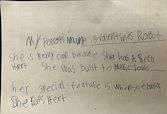 My Robots name is valentines Robot
She is really cool because she has A Red
Hert She was built to make Love
her special feature is when she
She Eats Hert